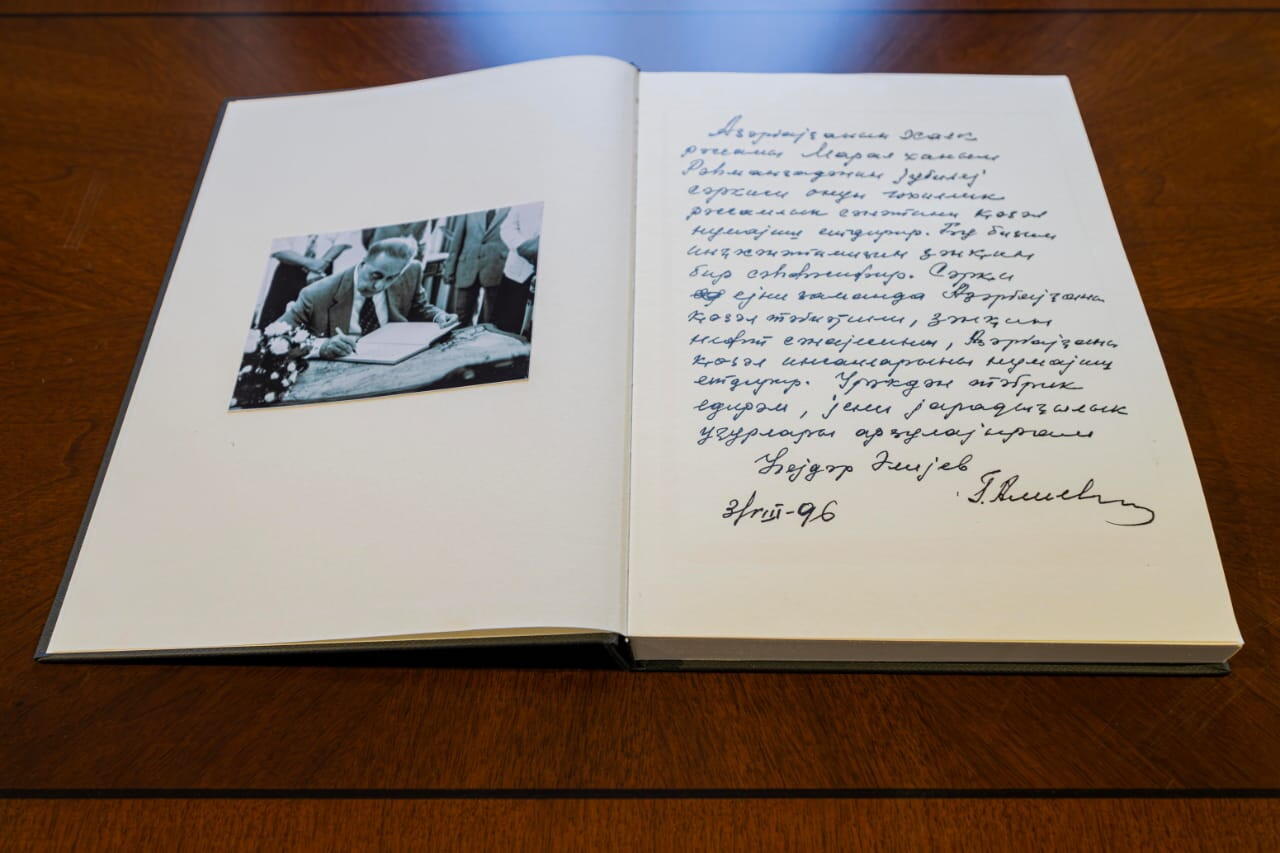 Азәрбајҹанын Халг
рәссамы Марал ханым
Рәһманзадәнин јубилеј
сәркиси онун чохиллик
рәссамлыг сәнәтини ҝөзәл
нүмајиш етдирир. Бу бизим
инҹәсәнәтимизин зәнҝин
бир сәһифәсидир. Сәрҝи
ејни заманда Азәрбајҹанын
ҝөзәл тәбиәтини, зәнҝин
нефт сәнајесини, Азәрбајҹанын
ҝөзәл инсанларыны нүмајиш
етдирир. Үрәкдән тәбрик
едирәм, јени јарадыҹылыг
уғурлары арзулајырам
Һејдәр Әлијев
Г. Алиев
3/VIII-96